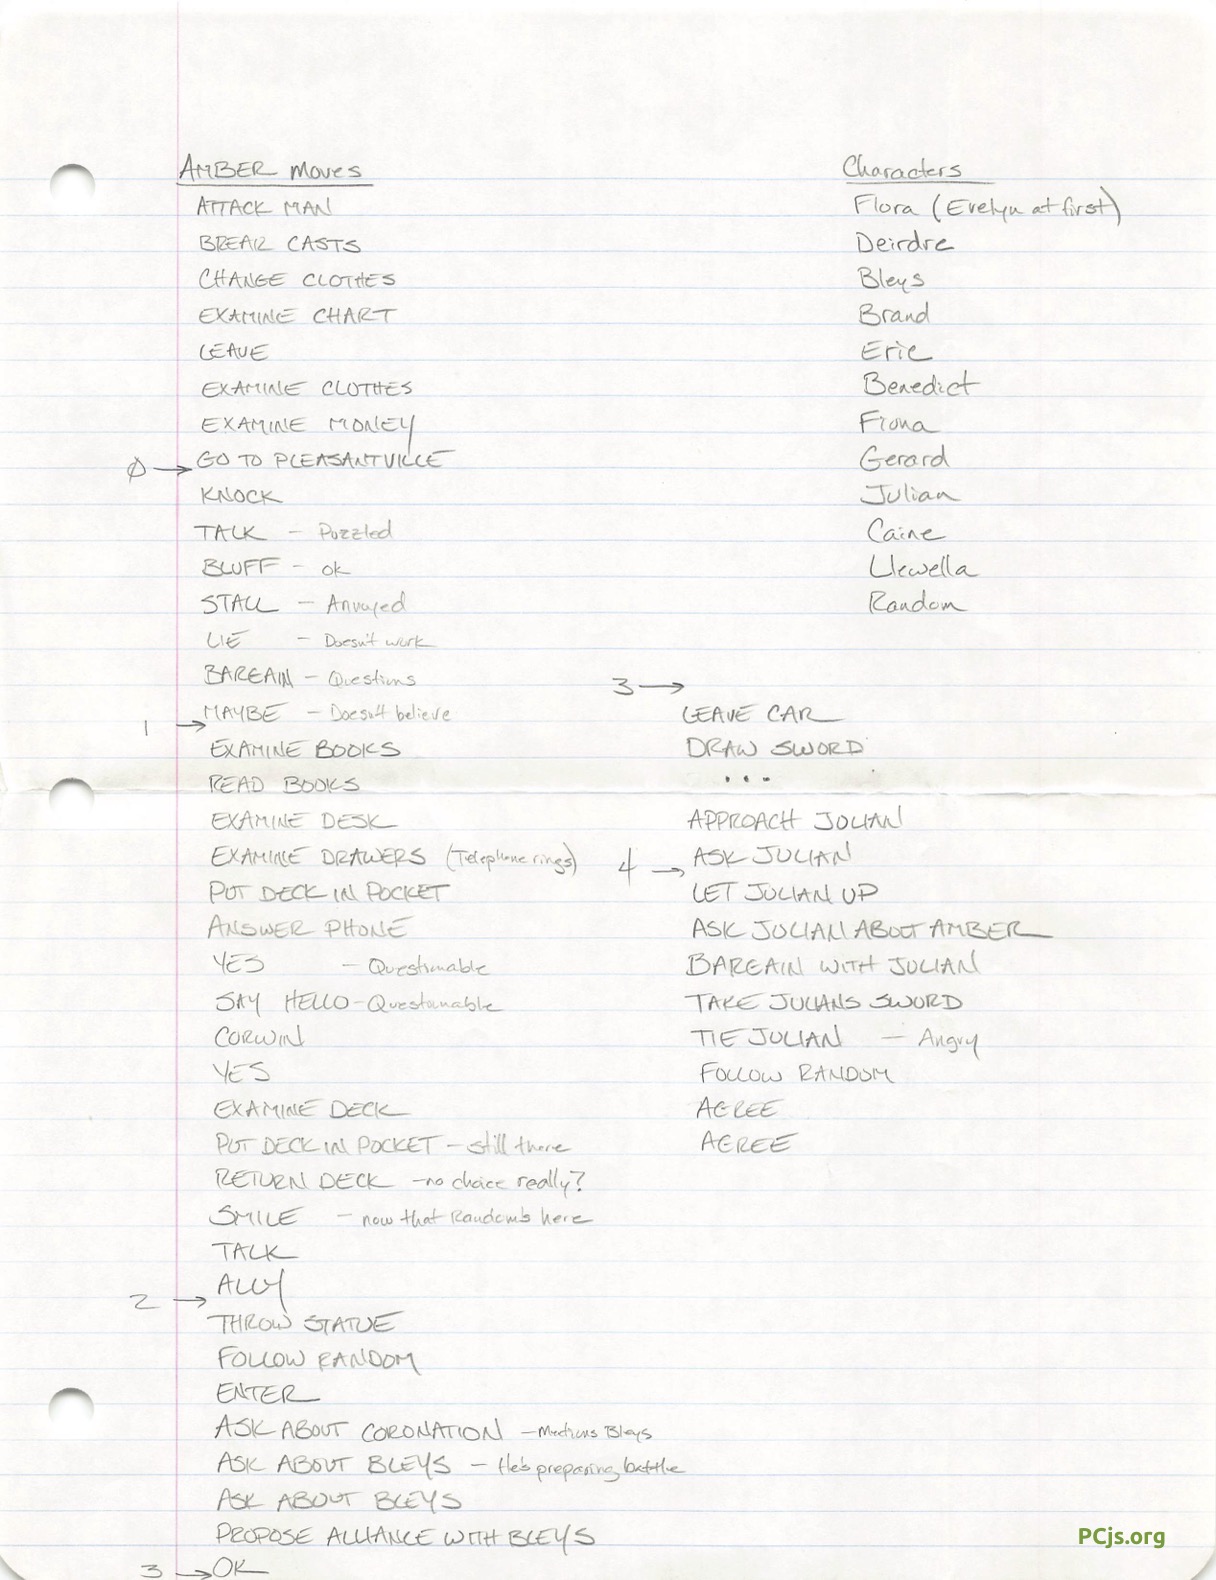 AMBER Moves
ATTACK MAN
BREAK CASTS
CHANGE CLOTHES
EXAMINE CHART
LEAVE
EXAMINE CLOTHES
EXAMINE MONEY
Ø → GO TO PLEASANTVILLE
KNOCK
TALK - Puzzled
BLUFF - ok
STALL - Annoyed
LIE - Doesn't work
BARGAIN - Questions
1 → MAYBE - Doesn't believe
EXAMINE BOOKS
READ BOOKS
EXAMINE DESK
EXAMINE DRAWERS (Telephone rings)
PUT DECK IN POCKET
ANSWER PHONE
YES - Questionable
SAY HELLO - Questionable
CORWIN
YES
EXAMINE DECK
PUT DECK IN POCKET - still there
RETURN DECK - no choice really?
SMILE - now that Random's here
TALK
ALLY
2 →
THROW STATUE
FOLLOW RANDOM
ENTER
ASK ABOUT CORONATION - Mentions Bleys
ASK ABOUT BLEYS - He's preparing battle
ASK ABOUT BLEYS
PROPOSE ALLIANCE WITH BLEYS
3 → OK
Characters
Flora (Evelyn at first)
Deirdre
Bleys
Brand
Eric
Benedict
Fiona
Gerard
Julian
Caine
Llewella
Random
3 →
LEAVE CAR
DRAW SWORD
...
APPROACH JULIAN
ASK JULIAN
4 →
LET JULIAN UP
ASK JULIAN ABOUT AMBER
BARGAIN WITH JULIAN
TAKE JULIANS SWORD
TIE JULIAN - Angry
FOLLOW RANDOM
AGREE
AGREE
PCjs.org